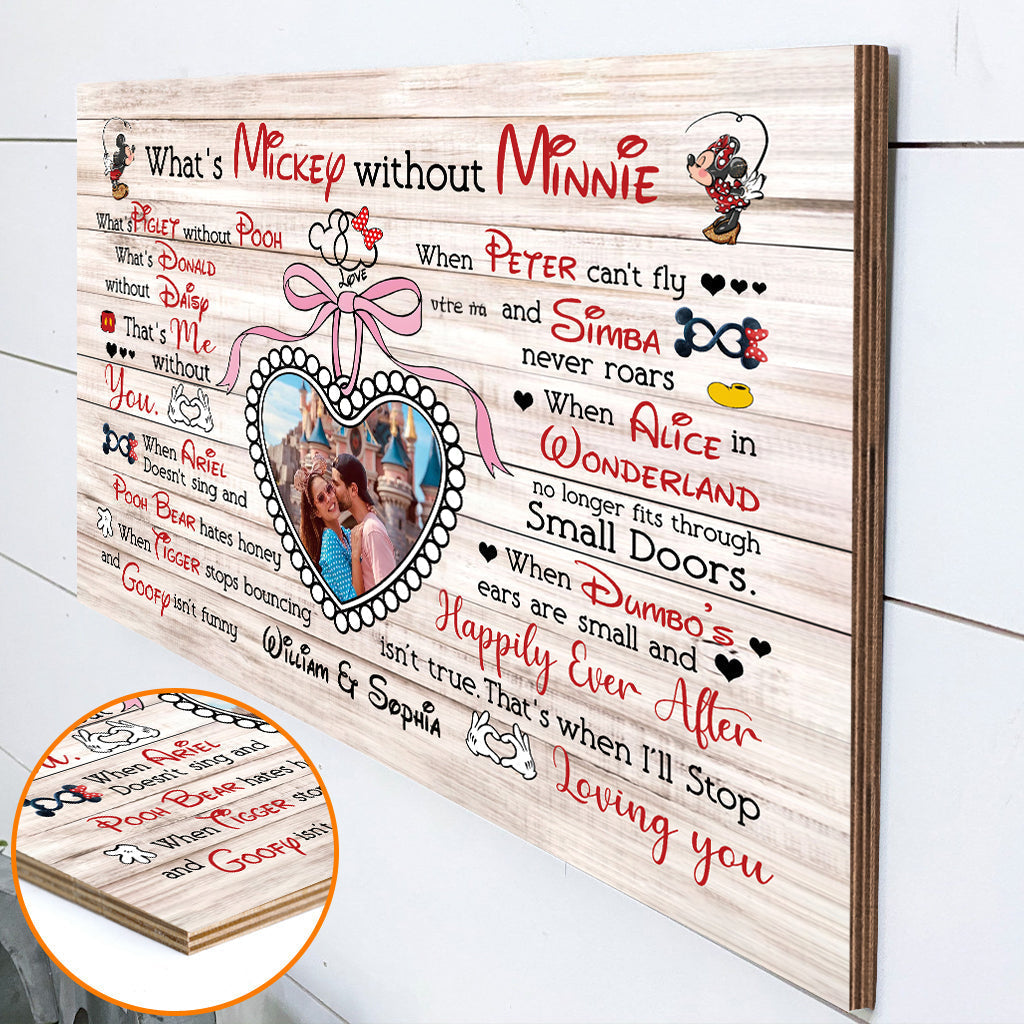 What's Mickey without Minnie
What's Piglet without Pooh
What's Donald
without Daisy
That's Me
without
You.
When Ariel
Doesn't sing and
Pooh Bear hates honey
When Tigger stops bouncing
and Goofy isn't funny
LOVE
William & Sophia
When Peter can't fly
and Simba
never roars
When Alice in
Wonderland
no longer fits through
Small Doors.
When Dumbo's
ears are small and
Happily Ever After
isn't true. That's when I'll Stop
Loving you
u.
When Ariel
Doesn't sing and
Pooh Bear hates h
When Tigger sto
and Goofy isn't